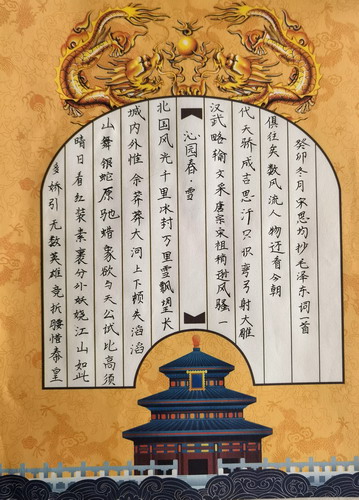 沁园春·雪
北国风光千里冰封万里雪飘望长
城内外惟余莽莽大河上下顿失滔滔
山舞银蛇原驰蜡象欲与天公试比高须
晴日看红装素裹分外妖娆江山如此
多娇引无数英雄竞折腰惜秦皇
汉武略输文采唐宗宋祖稍逊风骚一
代天骄成吉思汗只识弯弓射大雕
俱往矣数风流人物还看今朝
癸卯冬月宋思均抄毛泽东词一首